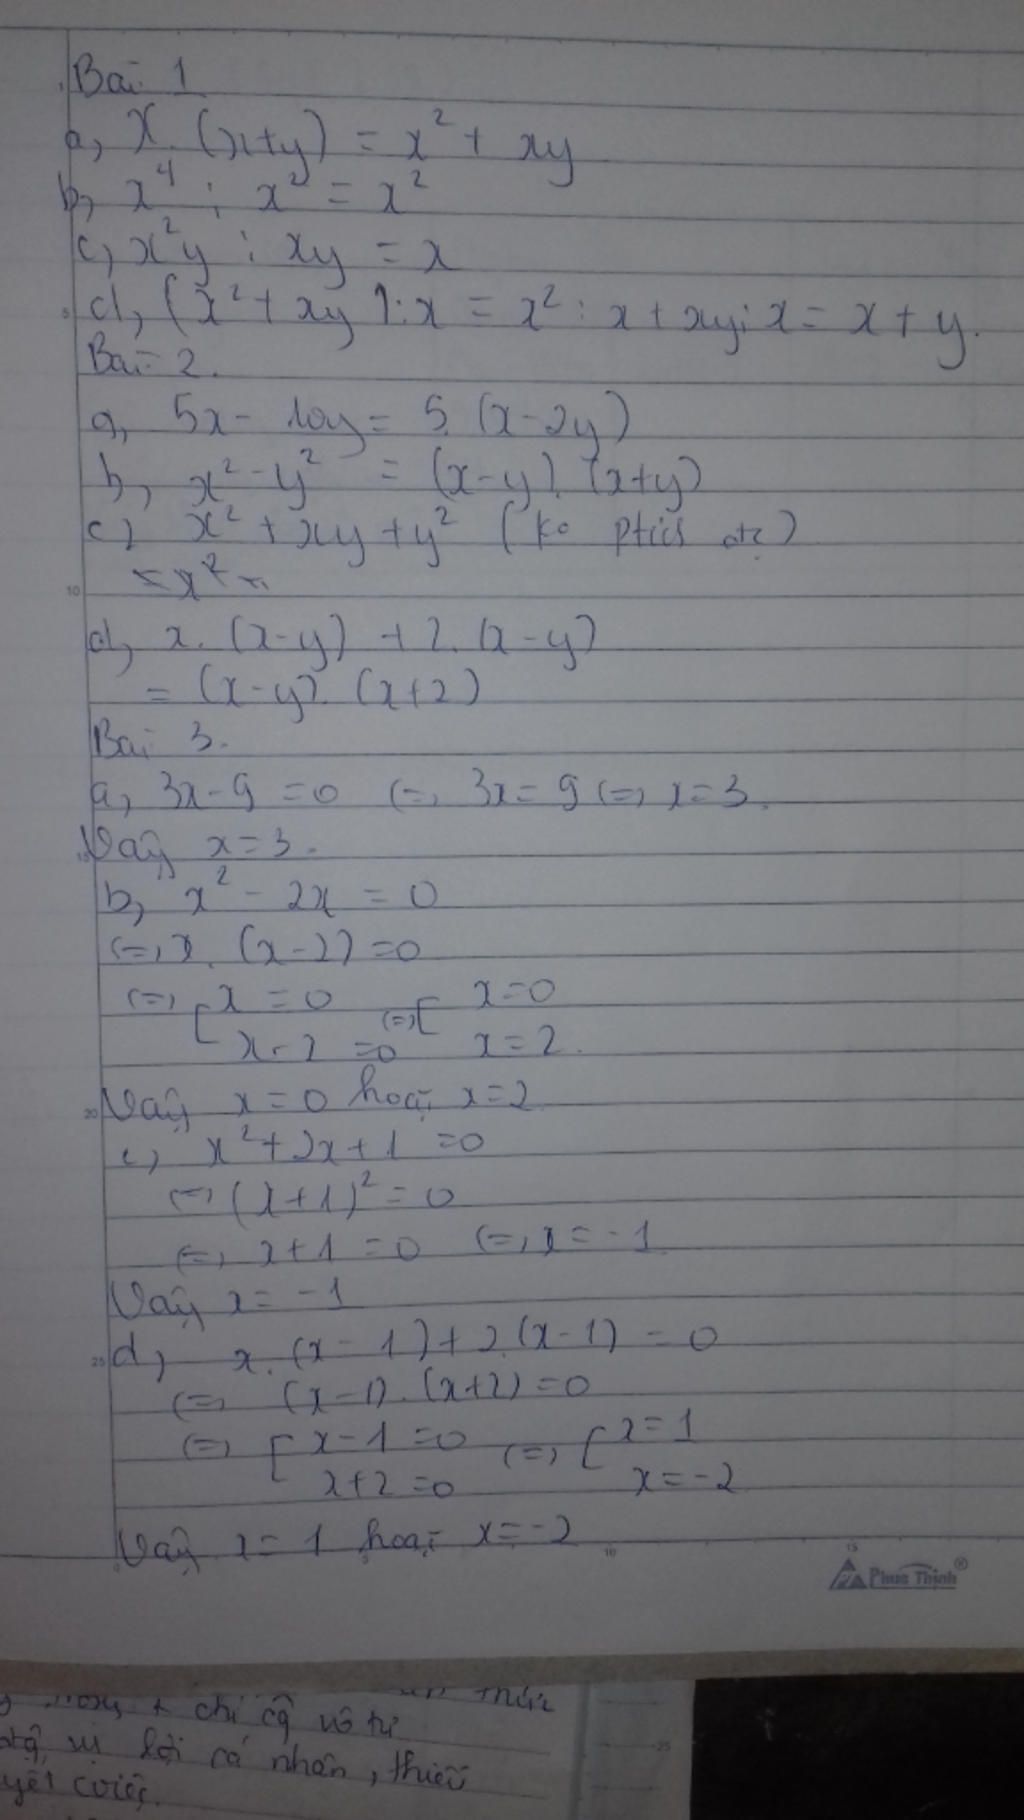 Bài 1
a, x.(x+y) = x² + xy
b, x⁴ : x² = x²
c, x²y : xy = x
d, (x² + xy) : x = x² : x + xy : x = x + y.
Bài 2.
a, 5x - 10y = 5.(x-2y)
b, x² - y² = (x-y).(x+y)
c) x² + xy + y² (ko ptích đc)
= x² +
d, x.(x-y) + 2.(x-y)
= (x-y).(x+2)
Bài 3.
a, 3x-9 = 0 (=) 3x = 9 (=) x = 3.
Vậy x = 3.
b, x² - 2x = 0
(=) x.(x-2) = 0
(=) [ x = 0 (=) [ x = 0
x - 2 = 0 x = 2.
Vậy x = 0 hoặc x = 2
c, x² + 2x + 1 = 0
(=) (x+1)² = 0
(=) x+1 = 0 (=) x = -1
Vậy x = -1
d, x.(x-1) + 2.(x-1) = 0
(=) (x-1).(x+2) = 0
(=) [ x-1 = 0 (=) [ x = 1
x+2 = 0 x = -2
Vậy x = 1 hoặc x = -2
Phúc Thịnh®
chí cg vô tư
lợi cá nhân, thiếu